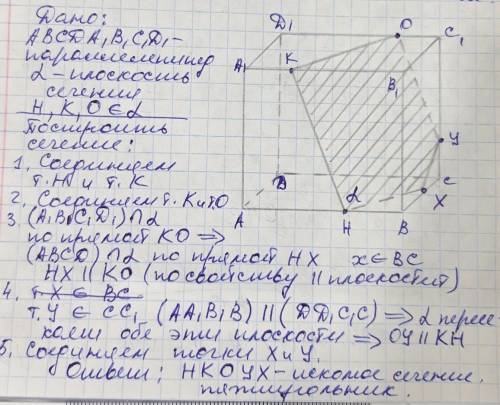 Дано:
ABCDA₁B₁C₁D₁ -
параллелепипед
α - плоскость
сечения
H, K, O ∈ α
Построить
сечение:
1. Соединяем
т. H и т. K
2. Соединяем т. K и т. O
3. (A₁B₁C₁D₁) ∩ α
по прямой KO ⇒
(ABCD) ∩ α по прямой HX x ∈ BC
HX || KO (по свойству || плоскостей)
4. т. X ∈ BC
т. У ∈ CC₁ (AA₁B₁B) || (DD₁C₁C) ⇒ α пересе
каем обе эти плоскости ⇒ OУ || KH
5. Соединяем точки X и У.
Ответ: HKOУX - искомое сечение.
пятиугольник.
Д₁
O
C₁
A₁
K
B₁
У
D
C
X
α
A
H
B